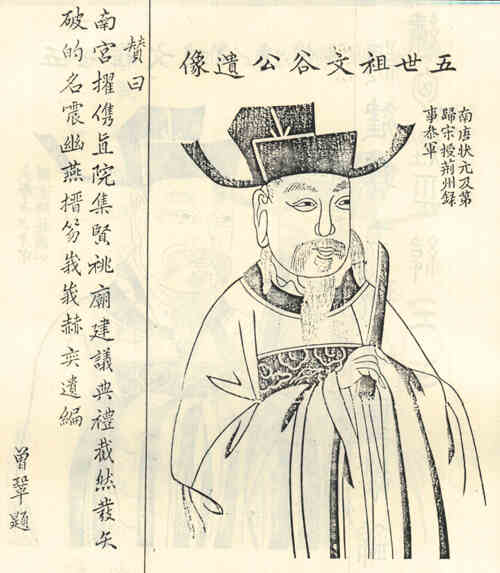 五世祖文谷公遺像
南唐状元及第
歸宋授荊州錄
事叅軍
賛曰
南宮擢儁直院集賢祧廟建議典禮截然發矢
破的名震幽燕搢笏峩峩赫奕遺編
曾鞏題